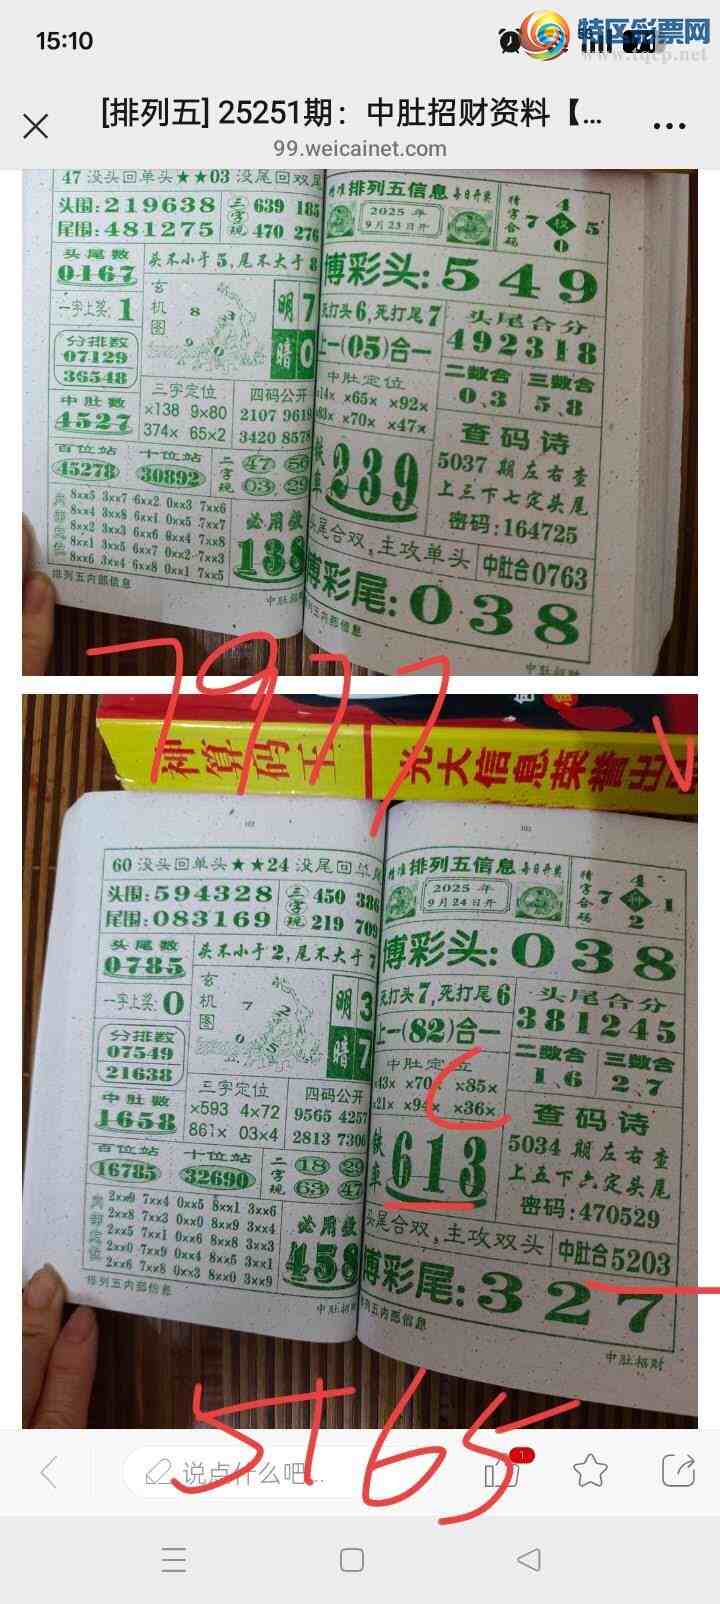 15:10
特区彩票网
www.tqcp.net
[排列五] 25251期：中肚招财资料【...
99.weicainet.com
47 没头回单头★★03 没尾回双尾
头围:219638
尾围:481275
三字现
639 185
470 276
头尾数
0167
头不小于5,尾不大于8
一字上奖:1
玄机图
8
明7
暗0
分排数
07129
36548
中肚数
4527
三字定位
×138 9×80
374× 65×2
四码公开
2107 9619
3420 8578
百位站
45278
十位站
30892
二字现
47 56
03 29
内部定位
8xx5 3xx7 6xx2 0xx3 7xx6
8xx4 3xx8 6xx1 0xx5 7xx7
8xx2 3xx3 6xx6 0xx4 7xx8
8xx1 3xx5 6xx7 0xx2 7xx3
8xx6 3xx4 6xx8 0xx1 7xx5
必用数
138
排列五内部信息
中肚招财
精准 排列五信息 每日开奖
2025 年
9月23日开
精字合码
4
7
5
0
博彩头:549
死打头6,死打尾7
上一(05)合一
头尾合分
492318
中肚定位
×14× ×65× ×92×
×83× ×70× ×47×
二数合
0、3
三数合
5、8
铁车
239
查码诗
5037 期左右查
上三下七定头尾
密码:164725
头尾合双,主攻单头
中肚合0763
博彩尾:038
排列五内部信息
中肚招财
7977
神算码王
光大信息荣誉出
60 没头回单头★★24 没尾回单尾
头围:594328
尾围:083169
三字现
450 386
219 709
头尾数
0785
头不小于2,尾不大于7
一字上奖:0
玄机图
7
2
0
5
明3
暗7
分排数
07549
21638
中肚数
1658
三字定位
×593 4×72
861× 03×4
四码公开
9565 4257
2813 7306
百位站
16785
十位站
32690
二字现
18 29
63 47
内部定位
2xx9 7xx4 0xx5 8xx1 3xx6
2xx8 7xx3 0xx0 8xx9 3xx4
2xx5 7xx1 0xx6 8xx8 3xx3
2xx0 7xx9 0xx4 8xx5 3xx1
2xx6 7xx8 0xx3 8xx0 3xx9
必用数
458
排列五内部信息
中肚招财
精准 排列五信息 每日开奖
2025 年
9月24日开
精字合码
4
7
1
2
博彩头:038
死打头7,死打尾6
上一(82)合一
头尾合分
381245
中肚定位
×43× ×70× ×85×
×21× ×94× ×36×
二数合
1、6
三数合
2、7
铁车
613
查码诗
5034 期左右查
上五下六定头尾
密码:470529
头尾合双,主攻双头
中肚合5203
博彩尾:327
排列五内部信息
中肚招财
5165
说点什么吧...
1